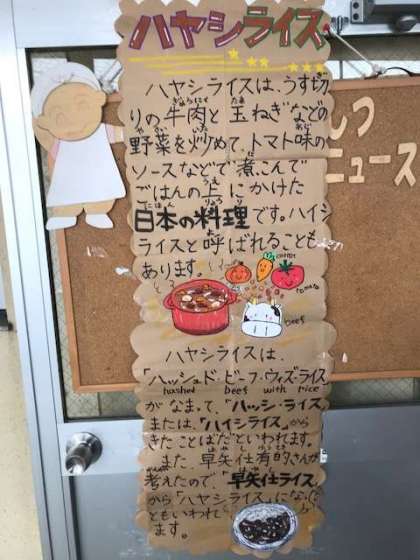 ハヤシライス
ハヤシライスは、うす切
りの牛肉と玉ねぎなどの
野菜を炒めて、トマト味の
ソースなどで煮こんで
ごはんの上にかけた
日本の料理です。ハイシ
ライスと呼ばれることも
あります。
carrot
tomato
beef
ハヤシライスは、
「ハッシュド・ビーフ・ウィズ・ライス」
hashed beef with rice
がなまって、「ハッシ・ライス」
または、「ハイシライス」から
きたことばだといわれます。
また、早矢仕有的さんが
考えたので「早矢仕ライス」
から「ハヤシライス」になった
ともいわれて
ます。
しつ
ニュース